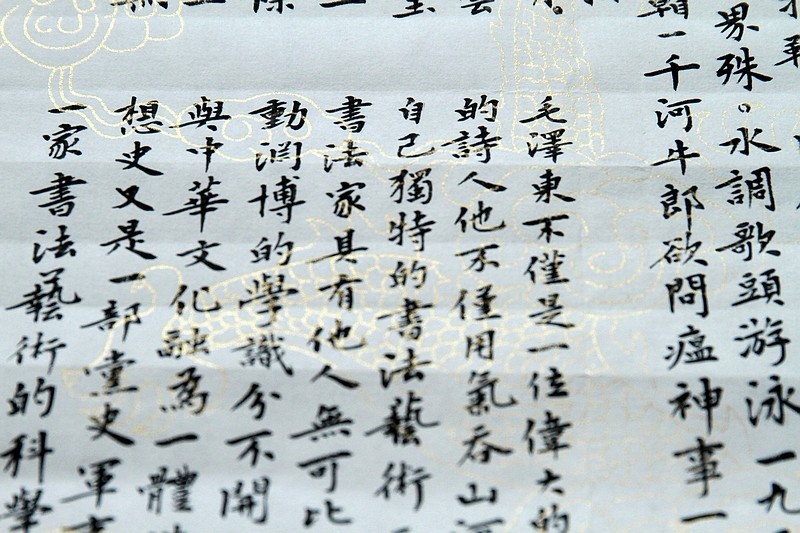 界殊。水調歌頭游泳一九
一千河牛郎欲問瘟神事一
毛澤東不僅是一位偉大的
的詩人他不僅用氣吞山河
自己獨特的書法藝術
書法家具有他人無可比
動淵博的學識分不開
與中華文化融為一體
想史又是一部黨史軍
一家書法藝術的科學